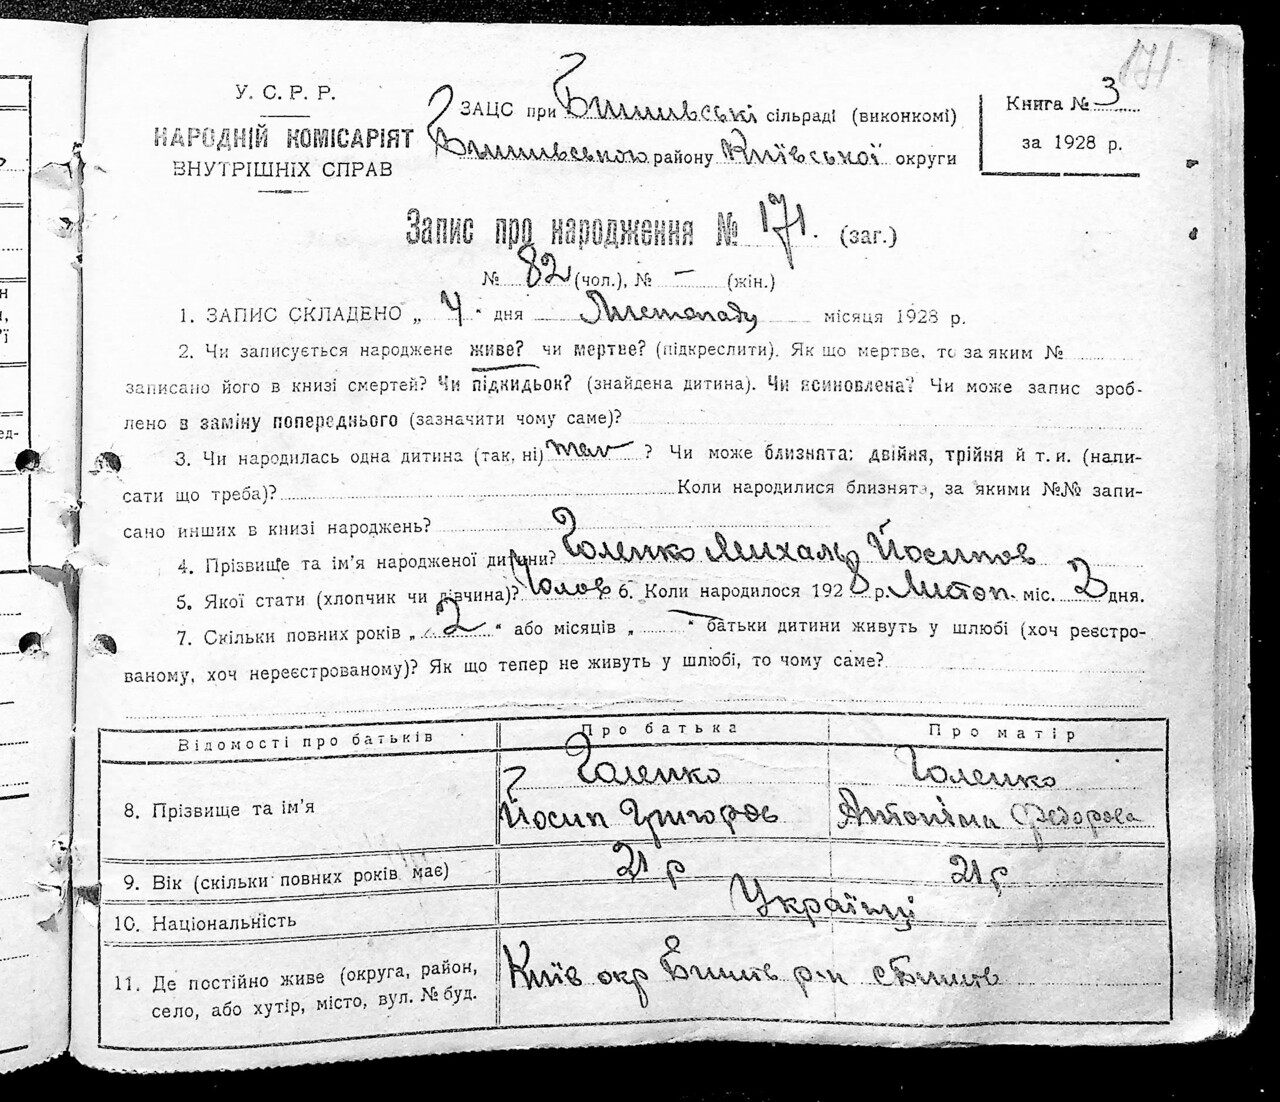 171
У. С. Р. Р.
НАРОДНІЙ КОМІСАРІЯТ
ВНУТРІШНІХ СПРАВ
ЗАЦС при Бишівські сільраді (виконкомі)
Бишивського району Київської округи
Книга № 3
за 1928 р.
Запис про народження № 171. (заг.)
№ 82 (чол.), № — (жін.)
1. ЗАПИС СКЛАДЕНО „ 4 " дня Листопаду місяця 1928 р.
2. Чи записується народжене живе? чи мертве? (підкреслити). Як що мертве, то за яким №
записано його в книзі смертей? Чи підкидьок? (знайдена дитина). Чи всиновлена? Чи може запис зроб-
лено в заміну попереднього (зазначити чому саме)?
3. Чи народилась одна дитина (так, ні) так ? Чи може близнята: двійня, трійня й т. и. (напи-
сати що треба)? Коли народилися близнята, за якими №№ запи-
сано инших в книзі народжень?
4. Прізвище та ім'я народженої дитини? Голенко Михаль Йосипов
5. Якої стати (хлопчик чи дівчина)? Чолов 6. Коли народилося 1928 р. Листоп. міс. 2 дня.
7. Скільки повних років „ 2 " або місяців „ — " батьки дитини живуть у шлюбі (хоч реєстро-
ваному, хоч нереєстрованому)? Як що тепер не живуть у шлюбі, то чому саме?
Відомості про батьків Про батька Про матір
8. Прізвище та ім'я Голенко Йосип Григоров Голенко Антоніна Федорова
9. Вік (скільки повних років має) 21 р 21 р
10. Національність Українці
11. Де постійно живе (округа, район,
село, або хутір, місто, вул. № буд. Київ окр Бишів р-н с Бишів